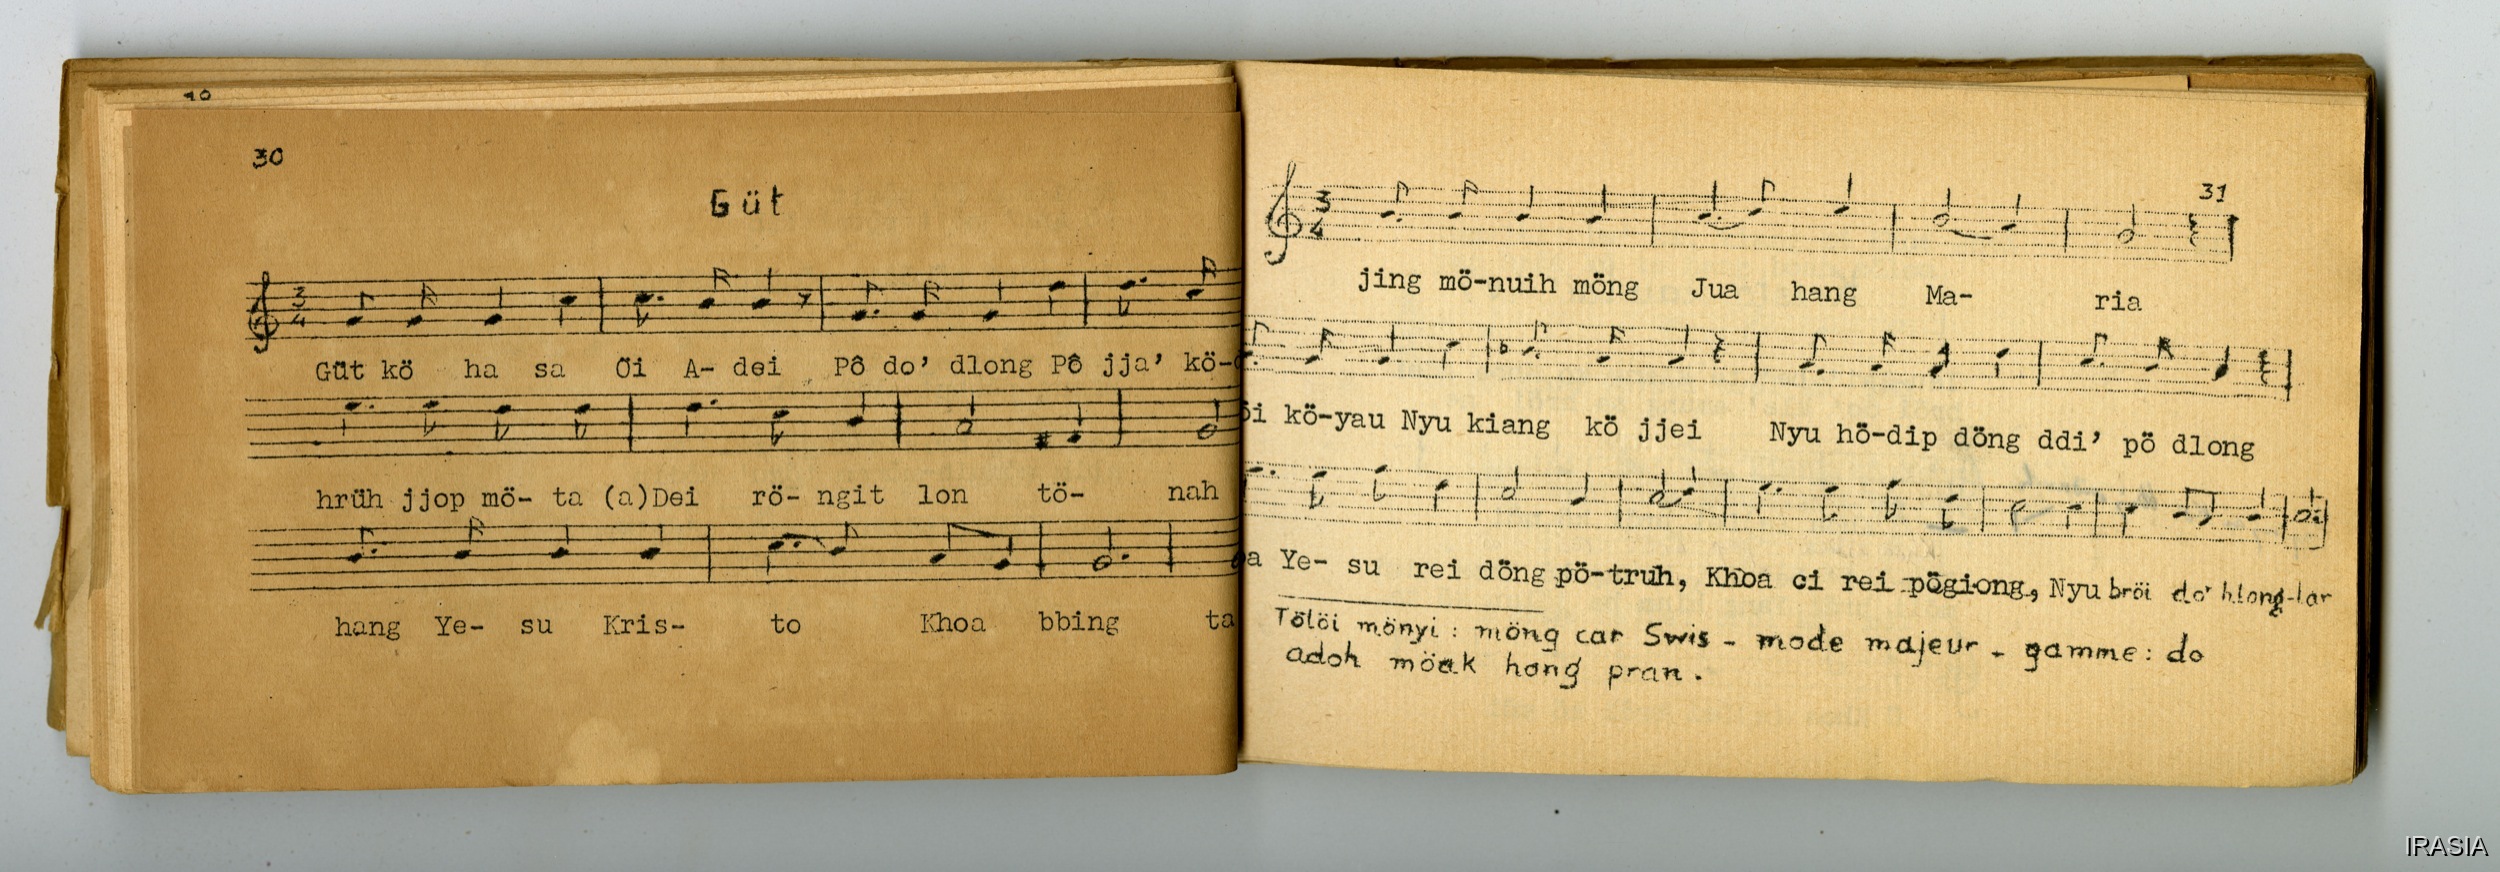 40
30
Güt
3
4
Güt kö ha sa Öi A- dei Pô do' dlong Pô jja' kö-
hrüh jjop mö- ta (a)Dei rö- ngit lon tö- nah
hang Ye- su Kris- to Khoa bbing ta
31
3
4
jing mö-nuih möng Jua hang Ma- ria
öi kö-yau Nyu kiang kö jjei Nyu hö-dip döng ddi' pö dlong
oa Ye- su rei döng pö-truh, Khoa ci rei pögiong, Nyu bröi do' hlong-lar
Tölöi mönyi : möng car Swis - mode majeur - gamme : do
adoh möak hang pran.
IRASIA